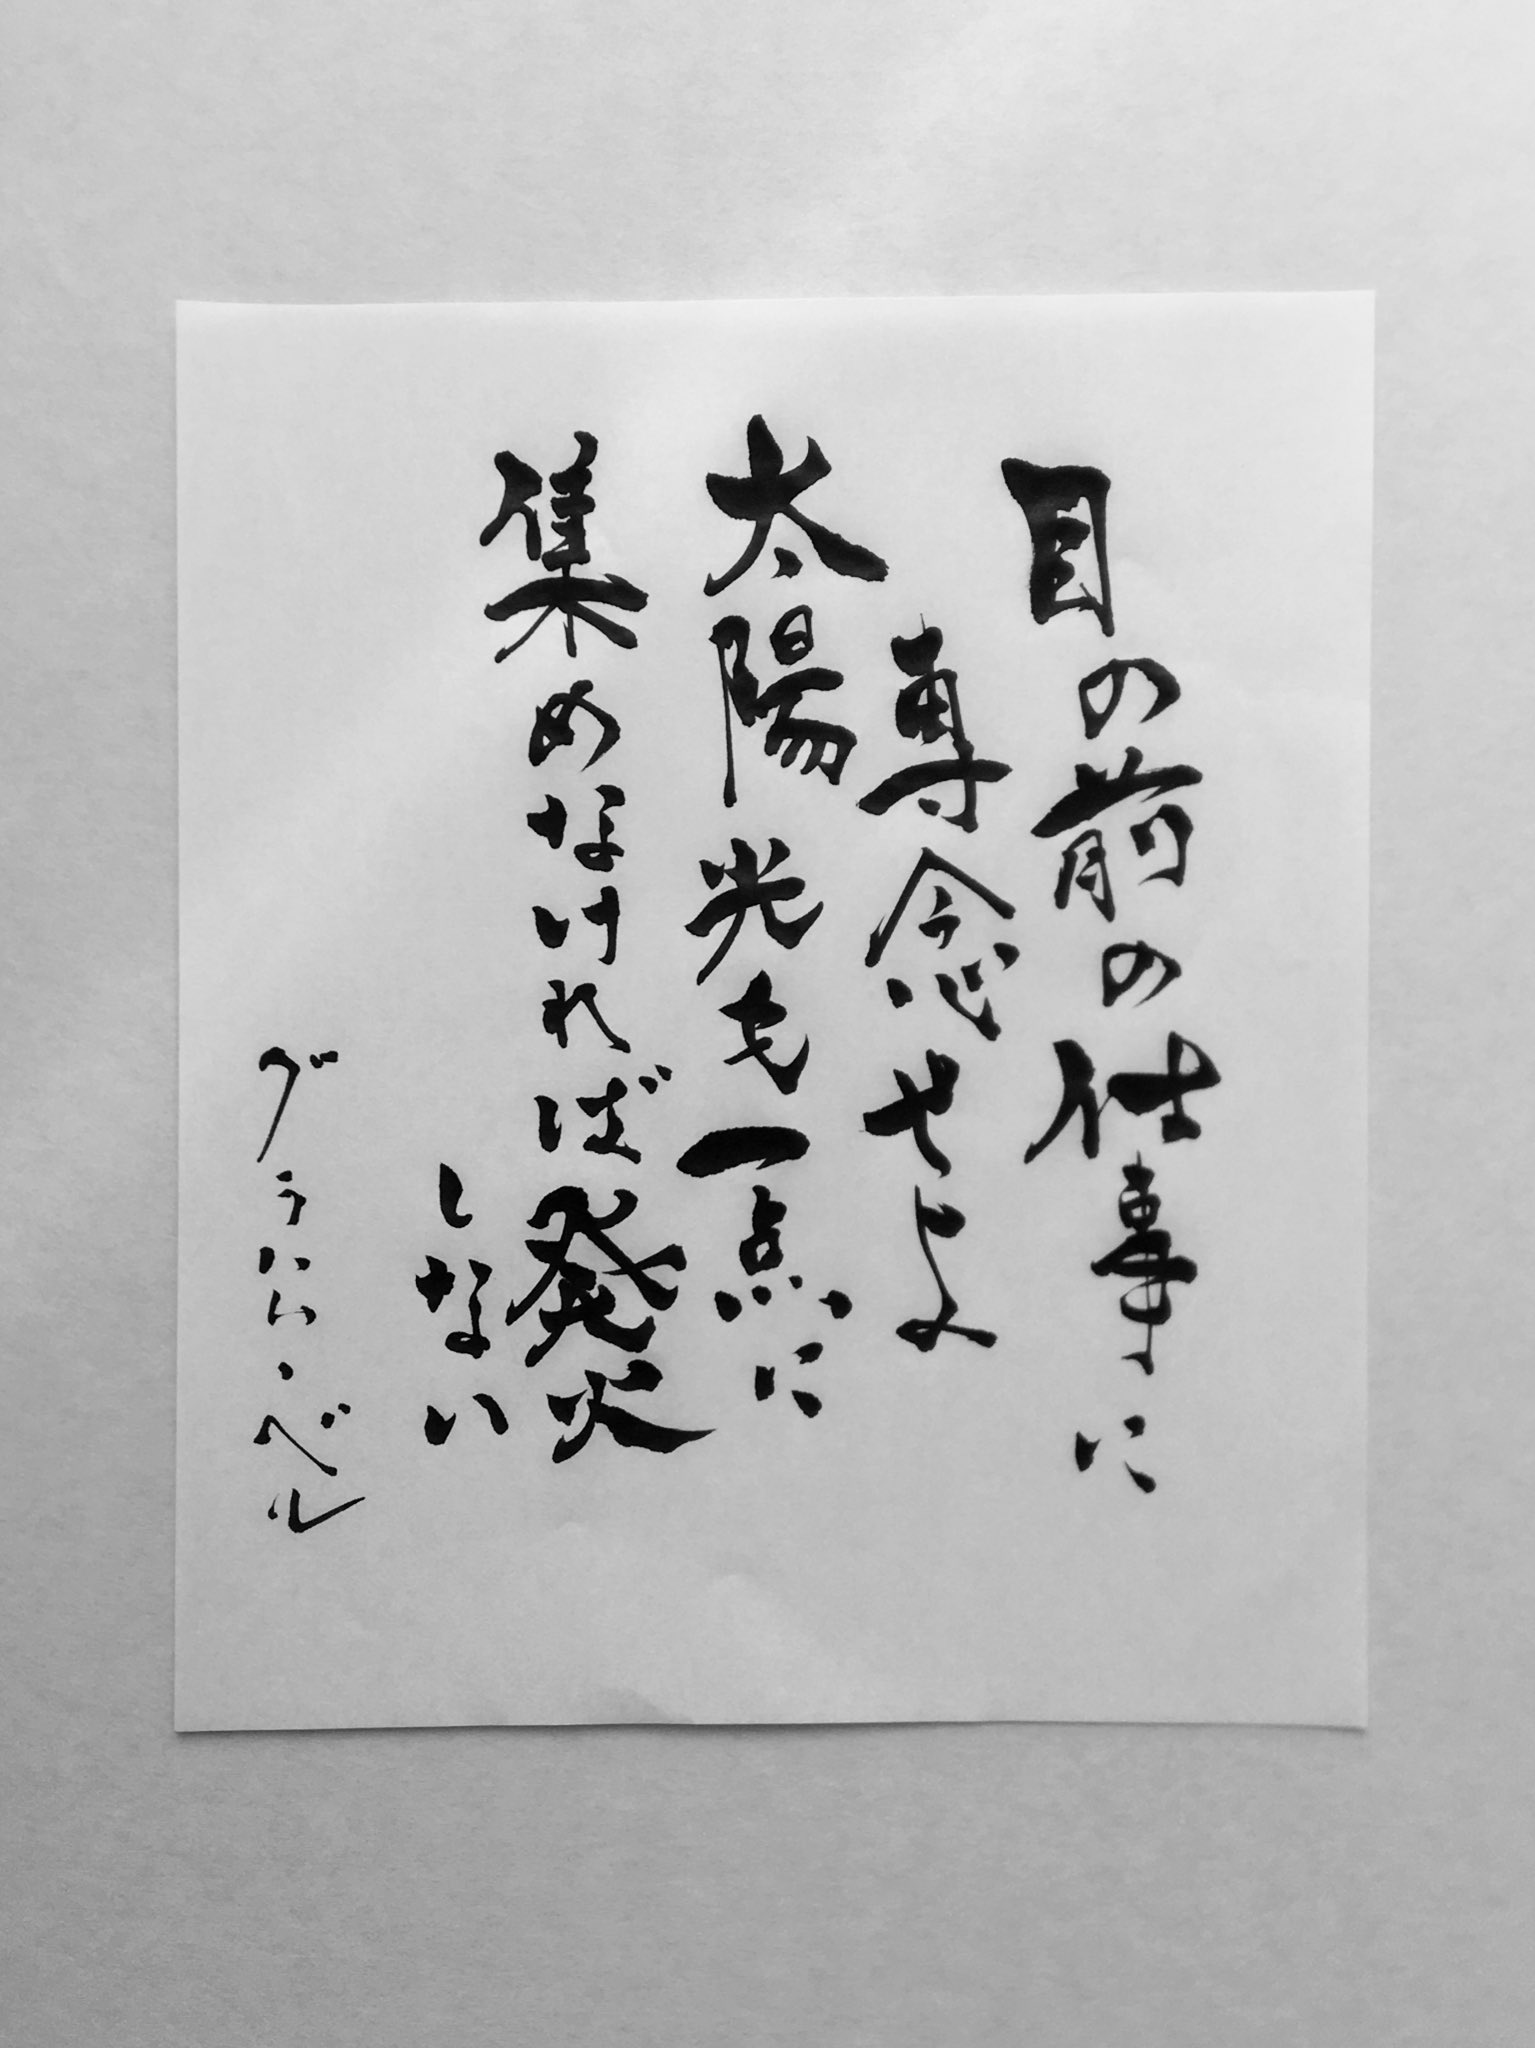 目の前の仕事に
専念せよ
太陽光も一点に
集めなければ発火
しない
グラハム・ベル